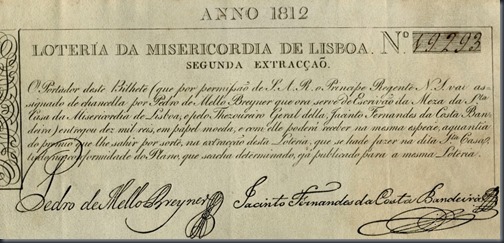 ANNO 1812
LOTERÍA DA MISERICORDIA DE LISBOA. Nº 19293
SEGUNDA EXTRACÇAÕ.
O Portador deste Bilhete (que por permissaõ de S.A.R. o Principe Regente N.S. vai as-
signado de chancella por Pedro de Mello Breyner que ora serve de Escrivaõ da Meza da Sta
Casa da Misericordia de Lisboa, e pelo Thezoureiro Geral della Jacinto Fernandes da Costa Ban-
deira) entregou dez mil reis, em papel moeda, e com elle poderá receber na mesma especie, a quantia
do premio que lhe sahir por sorte, na extração desta Loteria, que se hade fazer na dita Sta Casa,
na conformidade do Plano, que se acha determinado, e já publicado para a mesma Loteria.
Pedro de Mello Breyner
Jacinto Fernandes da Costa Bandeira